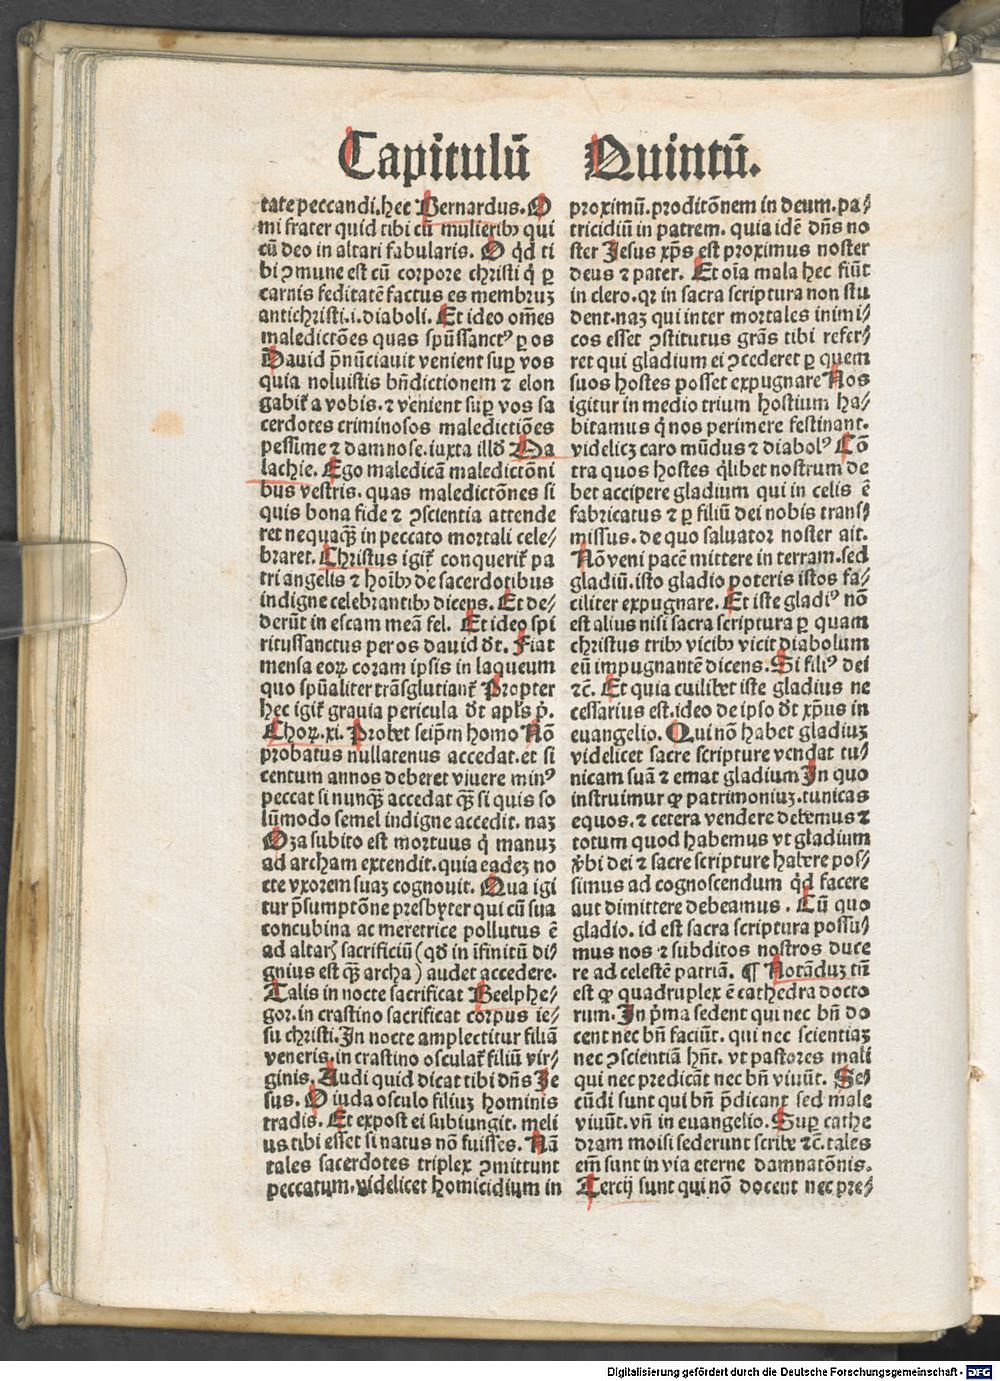 Capitulū Quintū.
tate peccandi. hec Bernardus. O
mi frater quid tibi cū mulieribꝰ qui
cū deo in altari fabularis. O qͥd ti
bi ꝯmune est cū corpore christi q̇ ꝑ
carnis feditatē factus es membruꝫ
antichristi .i. diaboli. Et ideo om̄es
maledictōes quas spūssanctꝰ ꝑ os
Dauid p̄nūciauit venient suꝑ vos
quia noluistis bn̄dictionem ⁊ elon
gabit᷑ a vobis. ⁊ venient suꝑ vos sa
cerdotes criminosos maledictiōes
pessime ⁊ damnose. iuxta illd̓ Ma
lachie. Ego maledicā maledictōni
bus vestris. quas maledictōnes si
quis bona fide ⁊ ꝯscientia attende
ret nequaqꝫ̄ in peccato mortali cele⸗
braret. Christus igit᷑ conquerit᷑ pa
tri angelis ⁊ hoībꝰ de sacerdotibus
indigne celebrantibꝰ dicens. Et de⸗
derūt in escam meā fel. Et ideo spi
ritussanctus per os dauid d̓t. Fiat
mensa eoꝝ coram ipsis in laqueum
quo spūaliter trāsglutiant᷑ Propter
hec igit᷑ grauia pericula d̓t apl̄s p̄.
Choꝝ. xi. Probet seip̄m homo Nō
probatus nullatenus accedat. et si
centum annos deberet viuere minꝰ
peccat si nunqꝫ̄ accedat qꝫ̄ si quis so
lūmodo semel indigne accedit. naꝫ
Oza subito est mortuus q̇ manuꝫ
ad archam extendit. quia eadeꝫ no
cte vxorem suaꝫ cognouit. Qua igi
tur p̄sumptōne presbyter qui cū sua
concubina ac meretrice pollutus ē
ad altar᷑ sacrificiū (qd̓ in īfinitū di⸗
gnius est qꝫ̄ archa) audet accedere.
Talis in nocte sacrificat Beelphe⸗
gor. in crastino sacrificat corpus ie⸗
su christi. In nocte amplectitur filiā
veneris. in crastino osculat᷑ filiū vir⸗
ginis. Audi quid dicat tibi dn̄s Je
sus. O iuda osculo filiuꝫ hominis
tradis. Et expost ei subiungit. meli
us tibi esset si natus nō fuisses. Nā
tales sacerdotes triplex ꝯmittunt
peccatum. videlicet homicidium in
proximū. proditōnem in deum. pa⸗
tricidiū in patrem. quia idē dn̄s no
ster Jesus xp̄s est proximus noster
deus ⁊ pater. Et oīa mala hec fiūt
in clero. qꝛ in sacra scriptura non stu
dent. naꝫ qui inter mortales inimi⸗
cos esset ꝯstitutus grās tibi refer⸗
ret qui gladium ei ꝯcederet ꝑ quem
suos hostes posset expugnare Nos
igitur in medio trium hostium ha⸗
bitamus q̇ nos perimere festinant.
videlicꝫ caro mūdus ⁊ diabolꝰ Cō
tra quos hostes q̇libet nostrum de
bet accipere gladium qui in celis ē
fabricatus ⁊ ꝑ filiū dei nobis trans⸗
missus. de quo saluator noster ait.
Nō veni pacē mittere in terram. sed
gladiū. isto gladio poteris istos fa⸗
ciliter expugnare. Et iste gladiꝰ nō
est alius nisi sacra scriptura ꝑ quam
christus tribꝰ vicibꝰ vicit diabolum
eū impugnantē dicens. Si filiꝰ dei
⁊c̄. Et quia cuilibet iste gladius ne
cessarius est. ideo de ipso d̓t xp̄us in
euangelio. Qui nō habet gladiuꝫ
videlicet sacre scripture vendat tu⸗
nicam suā ⁊ emat gladium In quo
instruimur ꝙ patrimoniuꝫ. tunicas
equos. ⁊ cetera vendere debemus ⁊
totum quod habemus vt gladium
v̓bi dei ⁊ sacre scripture habere pos⸗
simus ad cognoscendum qͥd facere
aut dimittere debeamus. Cū quo
gladio. id est sacra scriptura possu⸗
mus nos ⁊ subditos nostros duce
re ad celestē patriā. ¶ Notāduꝫ tn̄
est ꝙ quadruplex ē cathedra docto
rum. In p̄ma sedent qui nec bn̄ do
cent nec bn̄ faciūt. qui nec scientiaꝫ
nec ꝯscientiā hn̄t. vt pastores mali
qui nec predicāt nec bn̄ viuūt. Se⸗
cūdi sunt qui bn̄ p̄dicant sed male
viuūt. vn̄ in euangelio. Suꝑ cathe
dram moisi sederunt scribe ⁊c̄. tales
em̄ sunt in via eterne damnatōnis.
Tercij sunt qui nō docent nec pre⸗
Digitalisierung gefördert durch die Deutsche Forschungsgemeinschaft - DFG